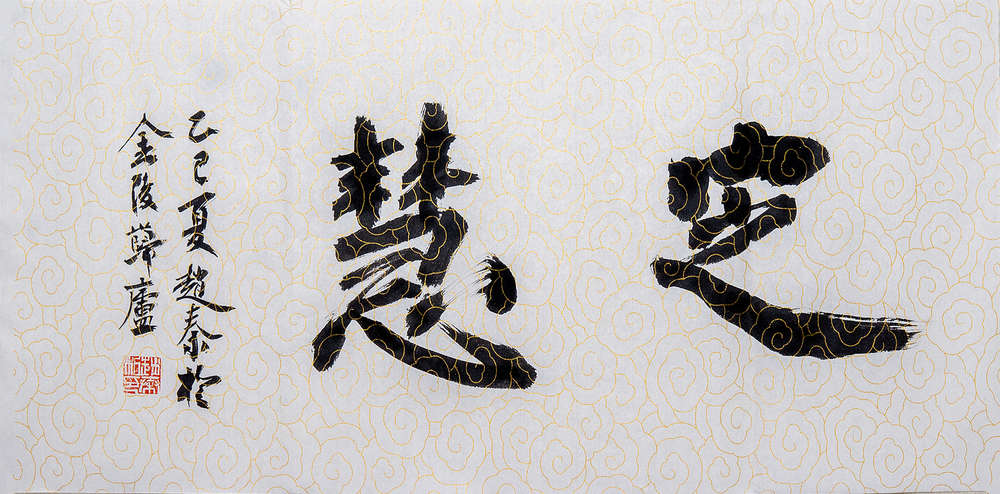 定慧
乙巳夏趙泰於
金陵廬